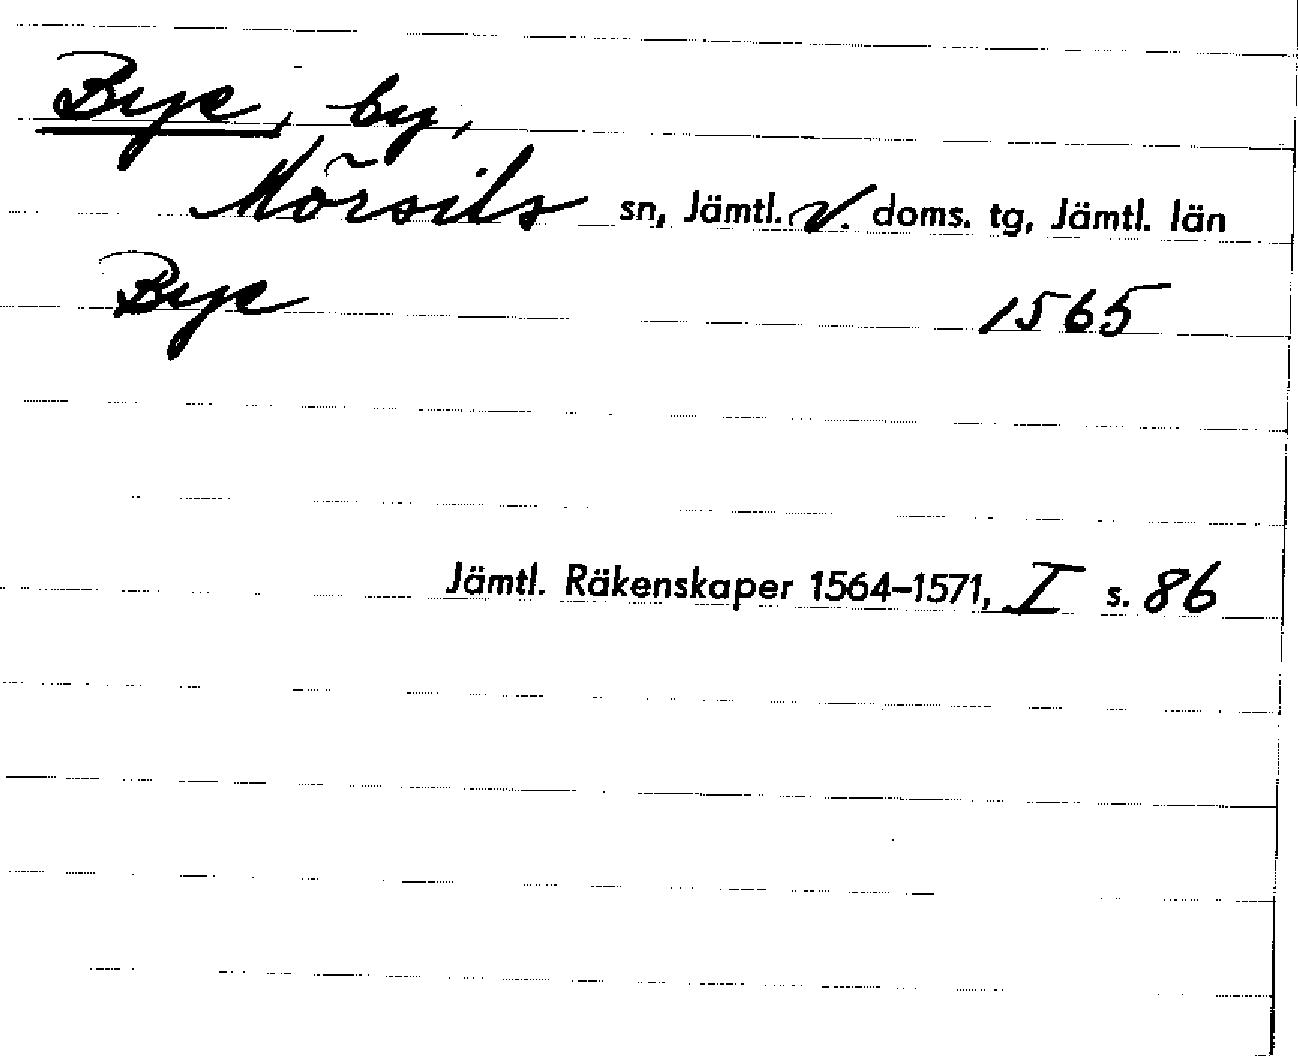 Bye, by,
Mörsils sn, Jämtl. V. doms. tg, Jämtl. län
Bye 1565
Jämtl. Räkenskaper 1564–1571, I s. 86